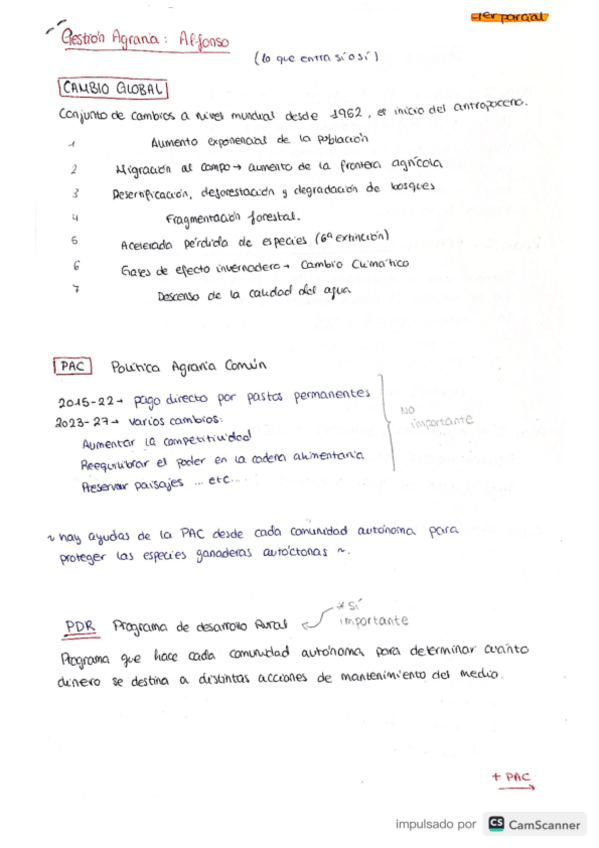 1er parcial
Gestión Agraria: Alfonso
(lo que entra sí o sí)
CAMBIO GLOBAL
Conjunto de cambios a nivel mundial desde 1962, es inicio del antropoceno.
1 Aumento exponencial de la población
2 Migración al campo → aumento de la frontera agrícola
3 Desertificación, desforestación y degradación de bosques
4 Fragmentación forestal.
5 Acelerada pérdida de especies (6ª extinción)
6 Gases de efecto invernadero → Cambio Climático
7 Descenso de la calidad del agua
PAC Política Agraria Común
2015-22 → pago directo por pastos permanentes
2023-27 → varios cambios:
Aumentar la competitividad
Reequilibrar el poder en la cadena alimentaria
Preservar paisajes ... etc...
NO
importante
~ hay ayudas de la PAC desde cada comunidad autónoma para
proteger las especies ganaderas autóctonas ~.
PDR Programa de desarrollo Rural
* sí
importante
Programa que hace cada comunidad autónoma para determinar cuánto
dinero se destina a distintas acciones de mantenimiento del medio.
+ PAC
impulsado por CS CamScanner